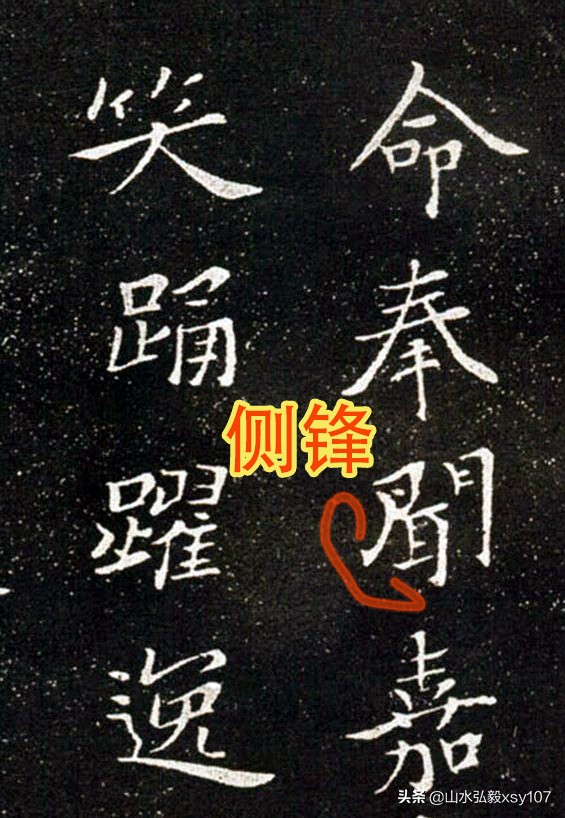 命奉聞嘉
笑踊躍逸
侧锋
头条 @山水弘毅xsy107